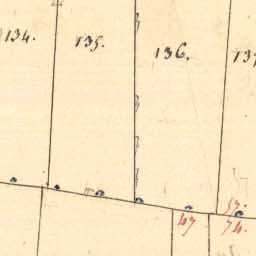 134. 135. 136. 137
47 74.